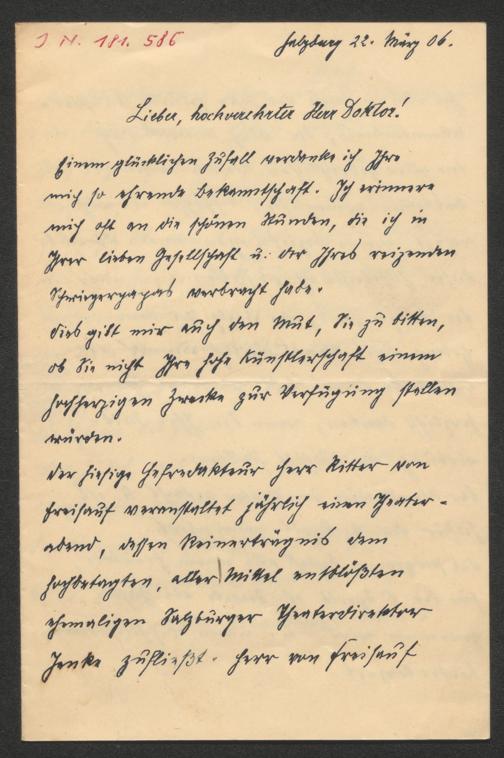 J. N. 181.586
Salzburg 22. März 06.
Lieber, hochverehrter Herr Doktor!
Einem glücklichen Zufall verdanke ich Ihre
mich so ehrende Bekanntschaft. Ich erinnere
mich oft an die schönen Stunden, die ich in
Ihrer lieben Gesellschaft u. der Ihres reizenden
Schwiegerpapas verbracht habe.
Dies gibt mir auch den Mut, Sie zu bitten,
ob Sie nicht Ihre hohe Künstlerschaft einem
hochherzigen Zwecke zur Verfügung stellen
würden.
Der hiesige Chefredakteur Herr Ritter von
Freisauf veranstaltet jährlich einen Theater-
abend, dessen Reinerträgnis dem
hochbetagten, aller Mittel entblößten
ehemaligen Salzburger Theaterdirektor
Jenke zufließt. Herr von Freisauf